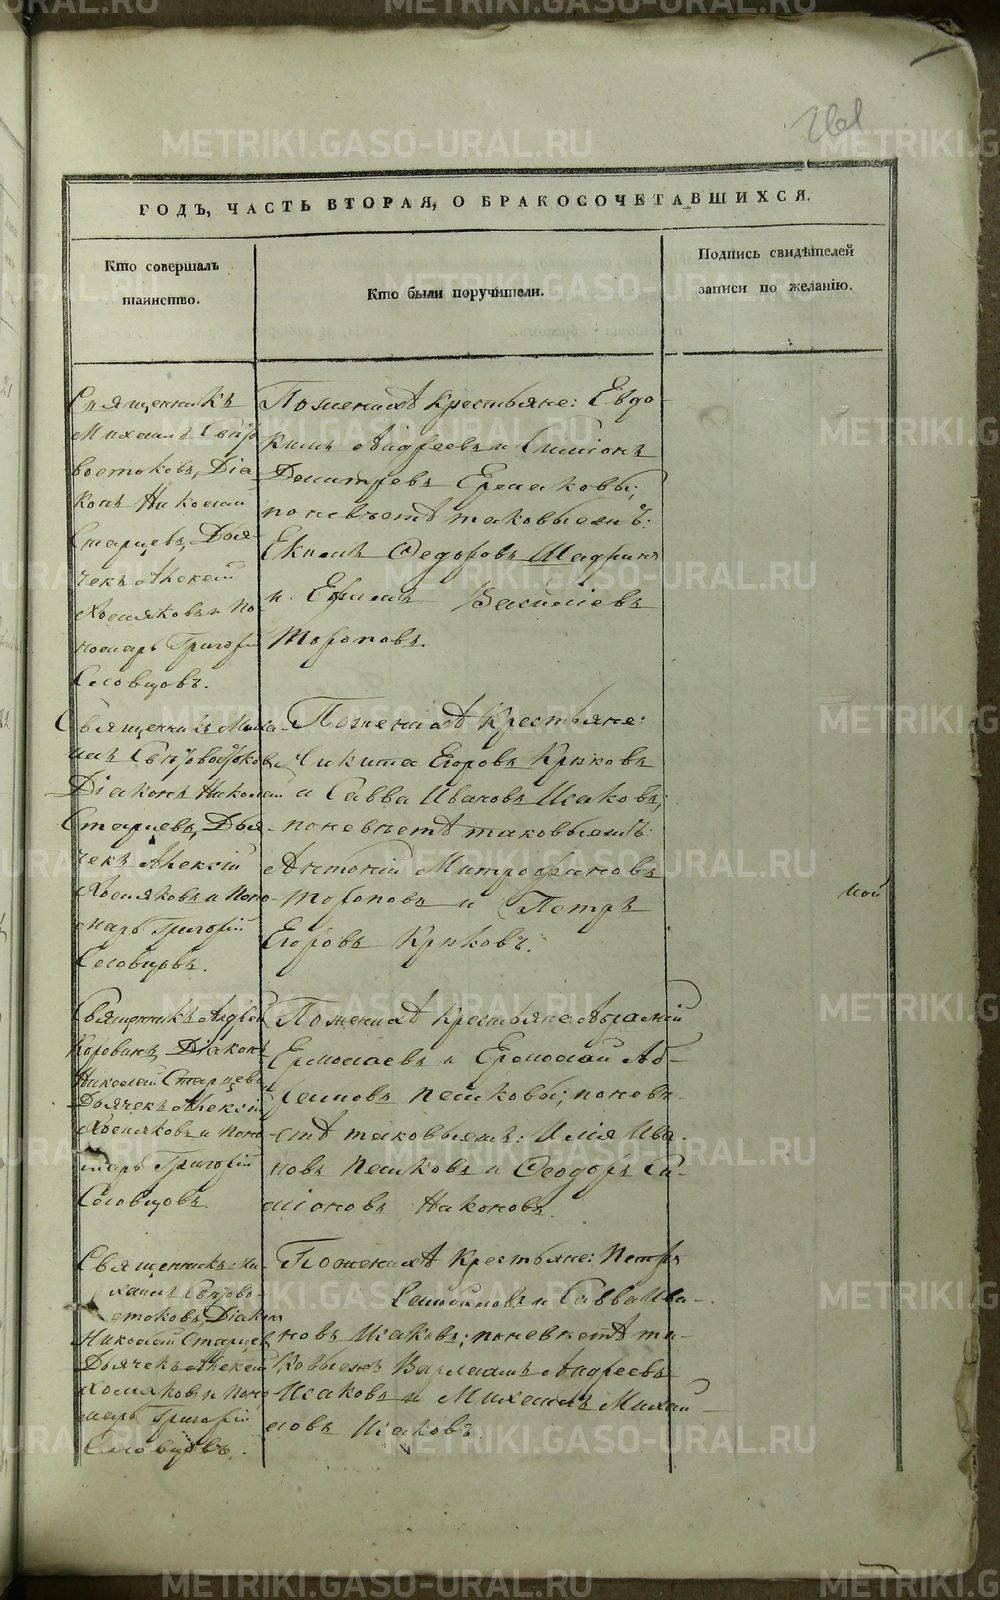 261
ГОДЪ, ЧАСТЬ ВТОРАЯ, О БРАКОСОЧЕТАВШИХСЯ.
Кто совершалъ
таинство.
Кто были поручители.
Подпись свидѣтелей
записи по желанію.
Священникъ
Михаилъ Свѣто
востоковъ, Діа
конъ Николай
Старцевъ, Дья
чекъ Алексѣй
Хомяковъ и По
номарь Григорій
Словцовъ.
По женихѣ крестьяне: Евдо-
кимъ Андреевъ и Симіонъ
Дмитревъ Ермаковы;
по невѣстѣ таковыежъ:
Екимъ Федоровъ Шадринъ
и Ефимъ Василіевъ
Тороповъ.
Священникъ Миха-
илъ Свѣтовостоковъ
Діаконъ Николай
Старцевъ, Дья-
чекъ Алексій
Хомяковъ и Поно-
марь Григорій
Словцовъ.
По женихѣ крестьяне:
Никита Егоровъ Крюковъ
и Савва Ивановъ Исаковъ;
по невѣстѣ таковыежъ:
Антоній Митрофановъ
Тороповъ и Петръ
Егоровъ Крюковъ.
Священникъ Андрей
Коровинъ, Діаконъ
Николай Старцевъ
Дьячекъ Алексій
Хомяковъ и Поно
марь Григорій
Словцовъ.
По женихѣ крестьяне
Ермолаевъ и Ермолай Аб-
рамовъ Пешковы; по невѣ-
стѣ таковыежъ: Илія Ива-
новъ Пешковъ и Феодоръ Си-
міоновъ Наконовъ.
Священникъ Ми-
хаилъ Свѣтово-
стоковъ, Діаконъ
Николай Старцевъ
Дьячекъ Алексѣй
Хомяковъ и Поно
марь Григорій
Словцовъ.
По женихѣ крестьяне: Петръ
и Савва Ива-
новъ Исаковъ; по невѣстѣ та-
ковыежъ Варлаамъ Андреевъ
Исаковъ и Михаилъ Михай-
ловъ Исаковъ.
METRIKI.GASO-URAL.RU